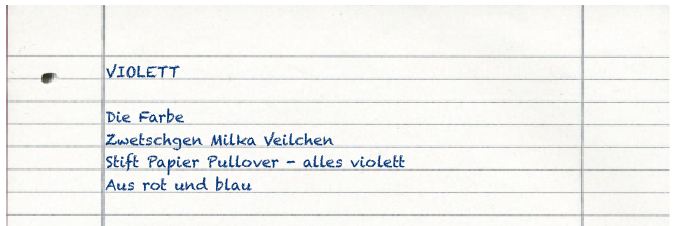 VIOLETT
Die Farbe
Zwetschgen Milka Veilchen
Stift Papier Pullover - alles violett
Aus rot und blau